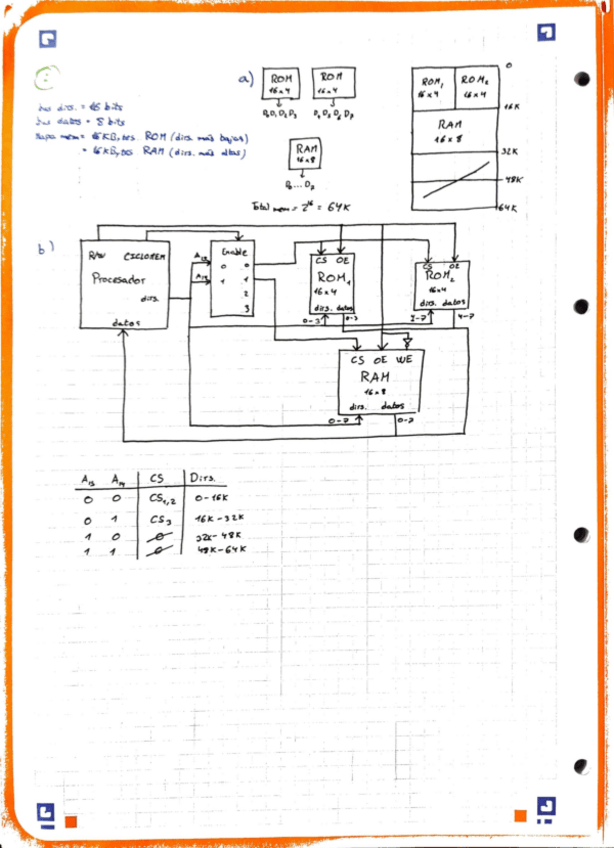 bus dirs. = 16 bits
bus datos = 8 bits
Mapa mem = 16 KBytes ROM (dirs. más bajas)
= 16 KBytes RAM (dirs. más altas)
a)
ROM
16x4
D0 D1 D2 D3
ROM
16x4
D4 D5 D6 D7
RAM
16x8
D0 ... D7
Total mem = 2^16 = 64K
ROM1
16x4
ROM2
16x4
0
16K
RAM
16x8
32K
48K
64K
b)
R/W CICLOMEM
Procesador
dirs.
datos
A15
A14
Enable
0 0
1 1
2
3
CS OE
ROM1
16x4
dirs. datos
0-3 0-3
CS OE
ROM2
16x4
dirs. datos
4-7
CS OE WE
RAM
16x8
dirs. datos
0-7 0-7
A15 A14 CS Dirs.
0 0 CS1,2 0-16K
0 1 CS3 16K-32K
1 0 Ø 32K-48K
1 1 Ø 48K-64K